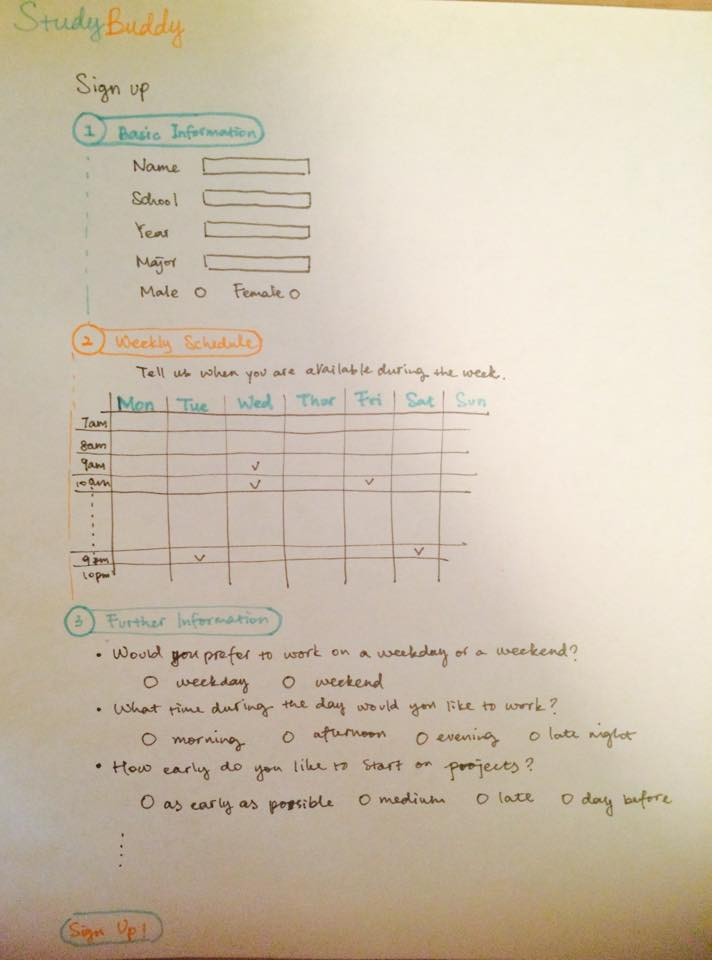 StudyBuddy
Sign up
1 Basic Information
Name
School
Year
Major
Male Female
2 Weekly Schedule
Tell us when you are available during the week.
Mon Tue Wed Thur Fri Sat Sun
7am
8am
9am
10am
9pm
10pm
3 Further Information
• Would you prefer to work on a weekday or a weekend?
weekday weekend
• What time during the day would you like to work?
morning afternoon evening late night
• How early do you like to start on projects?
as early as possible medium late day before
Sign Up!